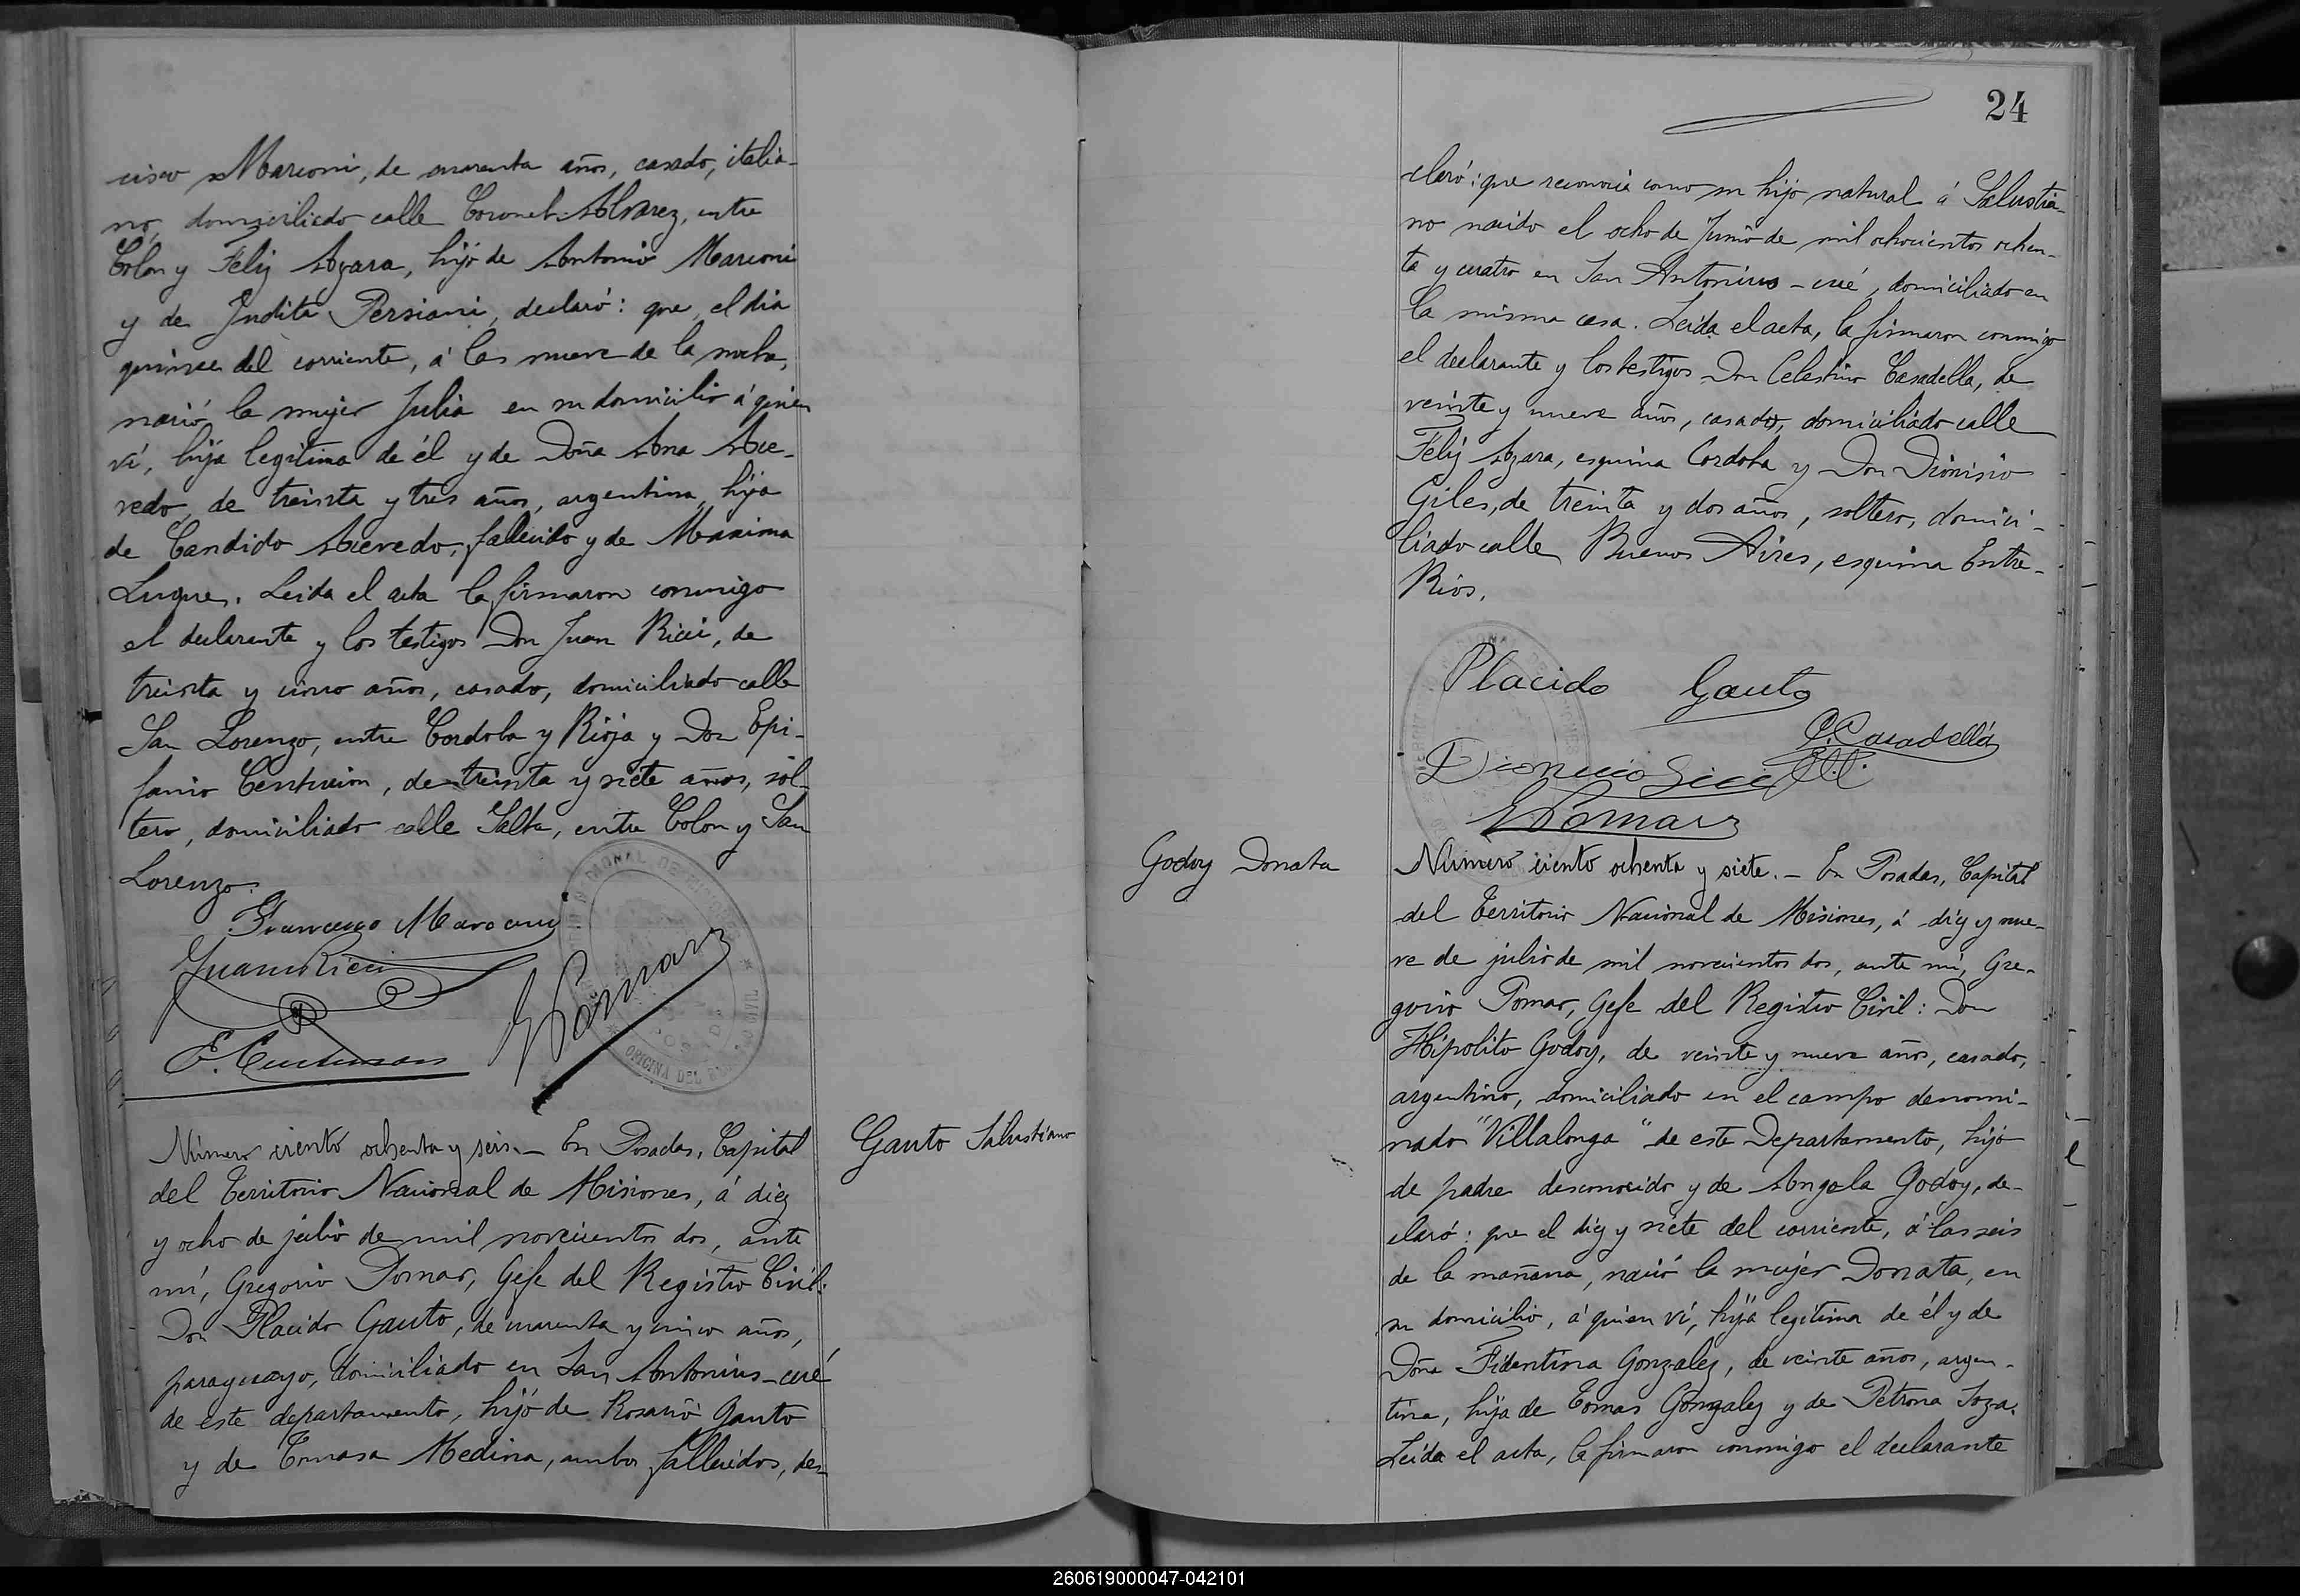 cisco Marconi, de cuarenta años, casado, italia-
no, domiciliado calle Coronel Alvarez, entre
Colon y Feliz Azara, hijo de Antonio Marconi
y de Judita Persiani, declaró: que el dia
quince del corriente, á las nueve de la noche,
nació la mujer Julia en su domicilio á quien
ví, hija legitima de él y de Doña Ana Ace-
vedo, de treinta y tres años, argentina, hija
de Candido Acevedo, fallecido y de Maxima
Luque. Leida el acta la firmaron conmigo
el declarante y los testigos Don Juan Ricci, de
treinta y cinco años, casado, domiciliado calle
San Lorenzo, entre Cordoba y Rioja y Don Epi-
fanio Centurion, de treinta y siete años, sol-
tero, domiciliado calle Salta, entre Colon y San
Lorenzo.
Francesco Marconi
Juan Ricci
G Pomar
E. Centurion
Gauto Salustiano
Número ciento ochenta y seis.- En Posadas, Capital
del Territorio Nacional de Misiones, á diez
y ocho de julio de mil novecientos dos, ante
mí, Gregorio Pomar, Gefe del Registro Civil:
Don Placido Gauto, de cuarenta y cinco años,
paraguayo, domiciliado en San Antonius-cué
de este departamento, hijo de Rosario Gauto
y de Tomasa Medina, ambos fallecidos, de-
24
claró: que reconocia como su hijo natural á Salustia-
no nacido el ocho de Junio de mil ochocientos ochen-
ta y cuatro en San Antonius-cué, domiciliado en
la misma casa. Leida el acta, la firmaron conmigo
el declarante y los testigos Don Celestino Casadella, de
veinte y nueve años, casado, domiciliado calle
Feliz Azara, esquina Cordoba y Don Dionisio
Giles, de treinta y dos años, soltero, domici-
liado calle Buenos Aires, esquina Entre-
Rios.
Placido Gauto
C. Casadellá
Dionicio
G Pomar
Godoy Donata
Número ciento ochenta y siete.- En Posadas, Capital
del Territorio Nacional de Misiones, á diez y nue-
ve de julio de mil novecientos dos, ante mí, Gre-
gorio Pomar, Gefe del Registro Civil: Don
Hipolito Godoy, de veinte y nueve años, casado,
argentino, domiciliado en el campo denomi-
nado "Villalonga" de este Departamento, hijo
de padre desconocido y de Angela Godoy, de-
claró: que el diez y siete del corriente, á las seis
de la mañana, nació la mujer Donata, en
su domicilio, á quien ví, hija legitima de él y de
Doña Fidentina Gonzalez, de veinte años, argen-
tina, hija de Tomas Gonzalez y de Petrona Soza.
Leida el acta, la firmaron conmigo el declarante
260619000047-042101